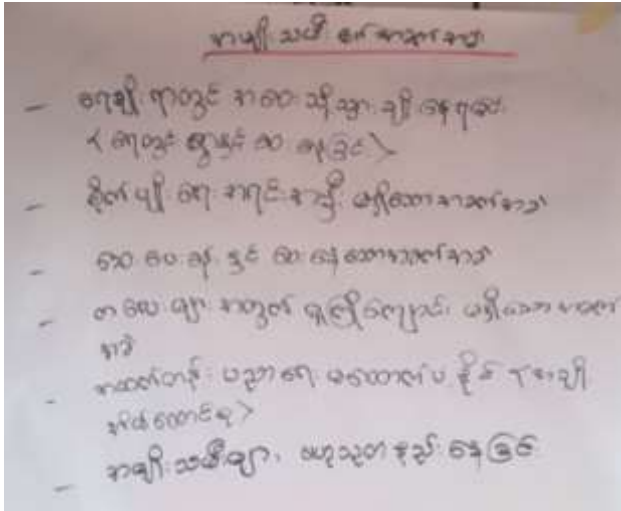 အမျိုးသမီး၏အခက်အခဲ
- ရေချိုးရာတွင် အဝေးသို့သွားချိုးနေရခြင်း
< ရေတွင်း ရွာနှင့် ဝေးနေခြင်း >
- စိုက်ပျိုးရေး အရင်းအနှီး မရှိသောအခက်အခဲ
- ဆေးပေးခန်းနှင့် ဝေးနေသောအခက်အခဲ
- ကလေးများအတွက် မူကြိုကျောင်း မရှိသောအခက်
အခဲ
- အထက်တန်းပညာရေး မထောက်ပံ့နိုင်
- အမျိုးသမီးများ ဗဟုသုတနည်းနေခြင်း